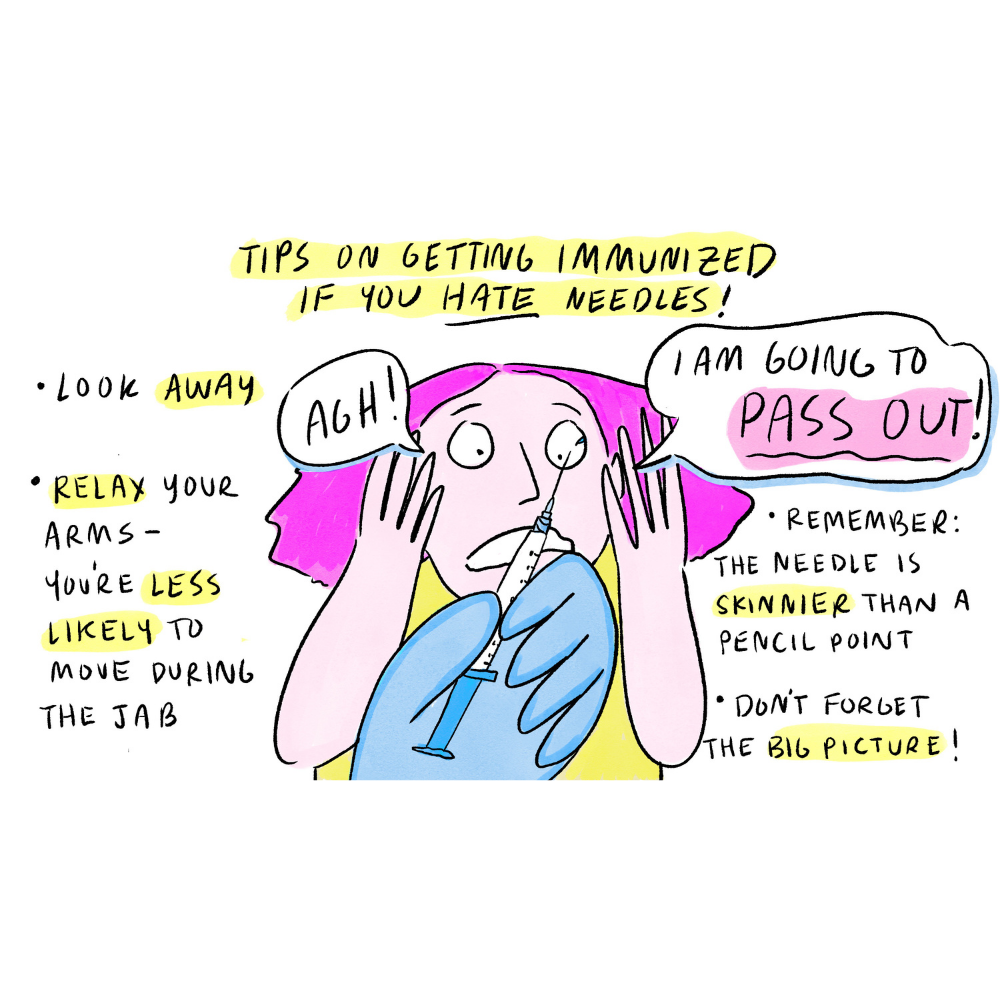 TIPS ON GETTING IMMUNIZED
IF YOU HATE NEEDLES!
• LOOK AWAY
• RELAX YOUR
ARMS-
YOU'RE LESS
LIKELY TO
MOVE DURING
THE JAB
AGH!
I AM GOING TO
PASS OUT!
• REMEMBER:
THE NEEDLE IS
SKINNIER THAN A
PENCIL POINT
• DON'T FORGET
THE BIG PICTURE!